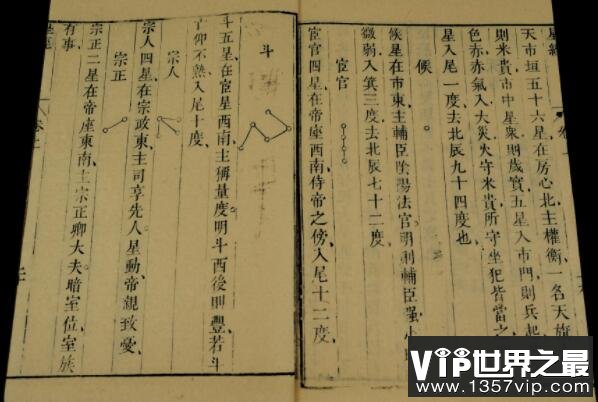 星經
天市垣五十六星在房心北主權衡一名天旗
則米貴市中星衆則歲實五星入市門則兵起
色赤赤氣入大災火守米貴所守坐犯皆當之
星入尾一度去北辰九十四度也
候
候星在市東主輔臣陰陽法官明則輔臣强小
微弱入箕三度去北辰七十二度
宦官
宦官四星在帝座西南侍帝之傍入尾十二度
斗
斗五星在宦星西南主稱量度明斗西後則豐若斗
仰不熟入尾十度
宗人
宗人四星在宗政東主司享先人星動帝親致憂
宗正
宗正二星在帝座東南主宗正卿大夫暗室位室族
有事
星經 卷上 二
VIP世界之最
www.1357vip.com